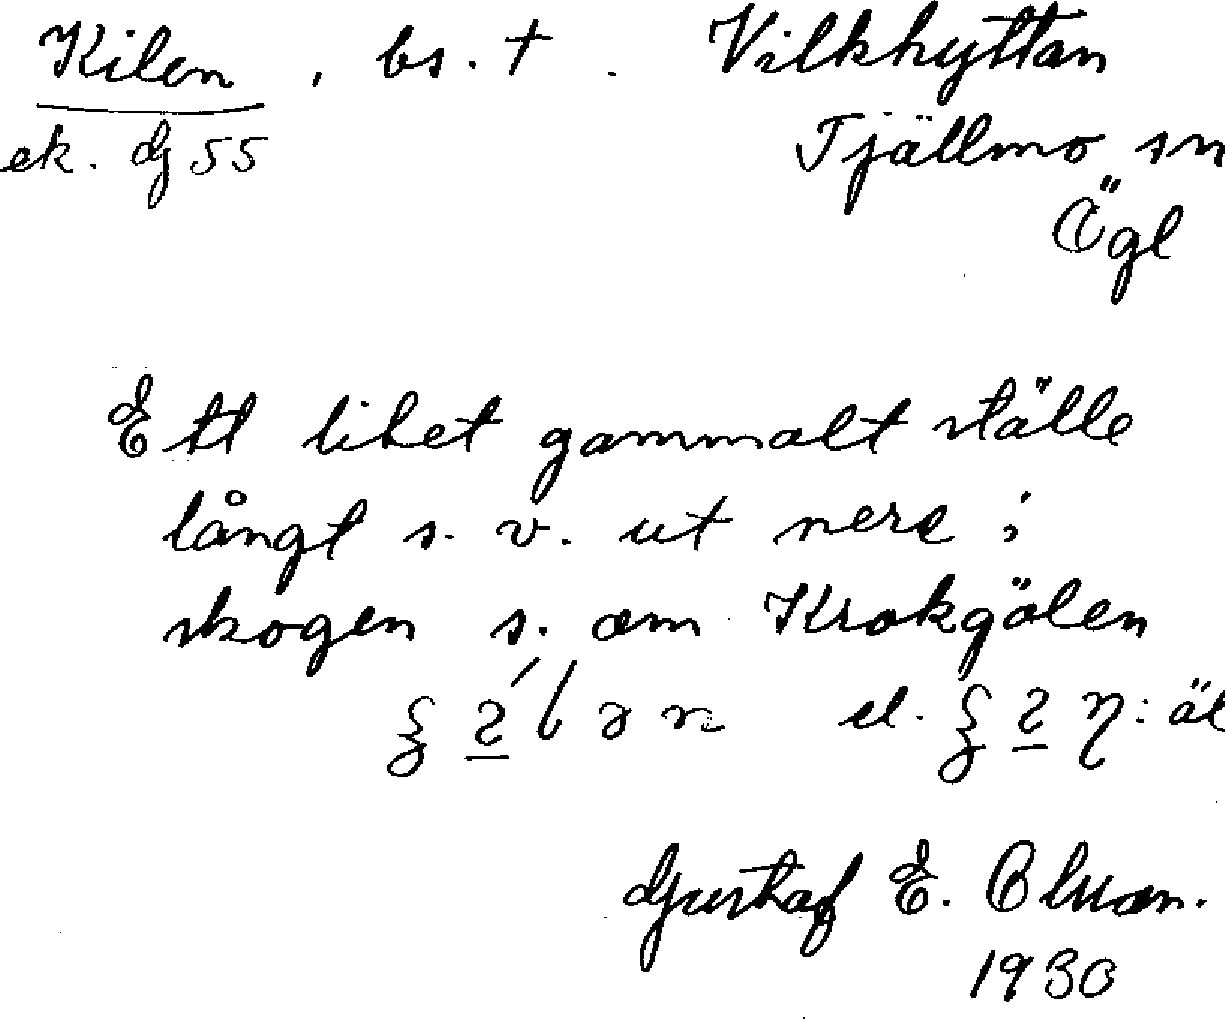 Kilen, bs. †. Vilkhyttan
ek. dj 55 Tjällmo sn
Ögl
Ett litet gammalt ställe
långt s. v. ut nere i
skogen s. om Krokgölen
el.
Gustaf E.
1930